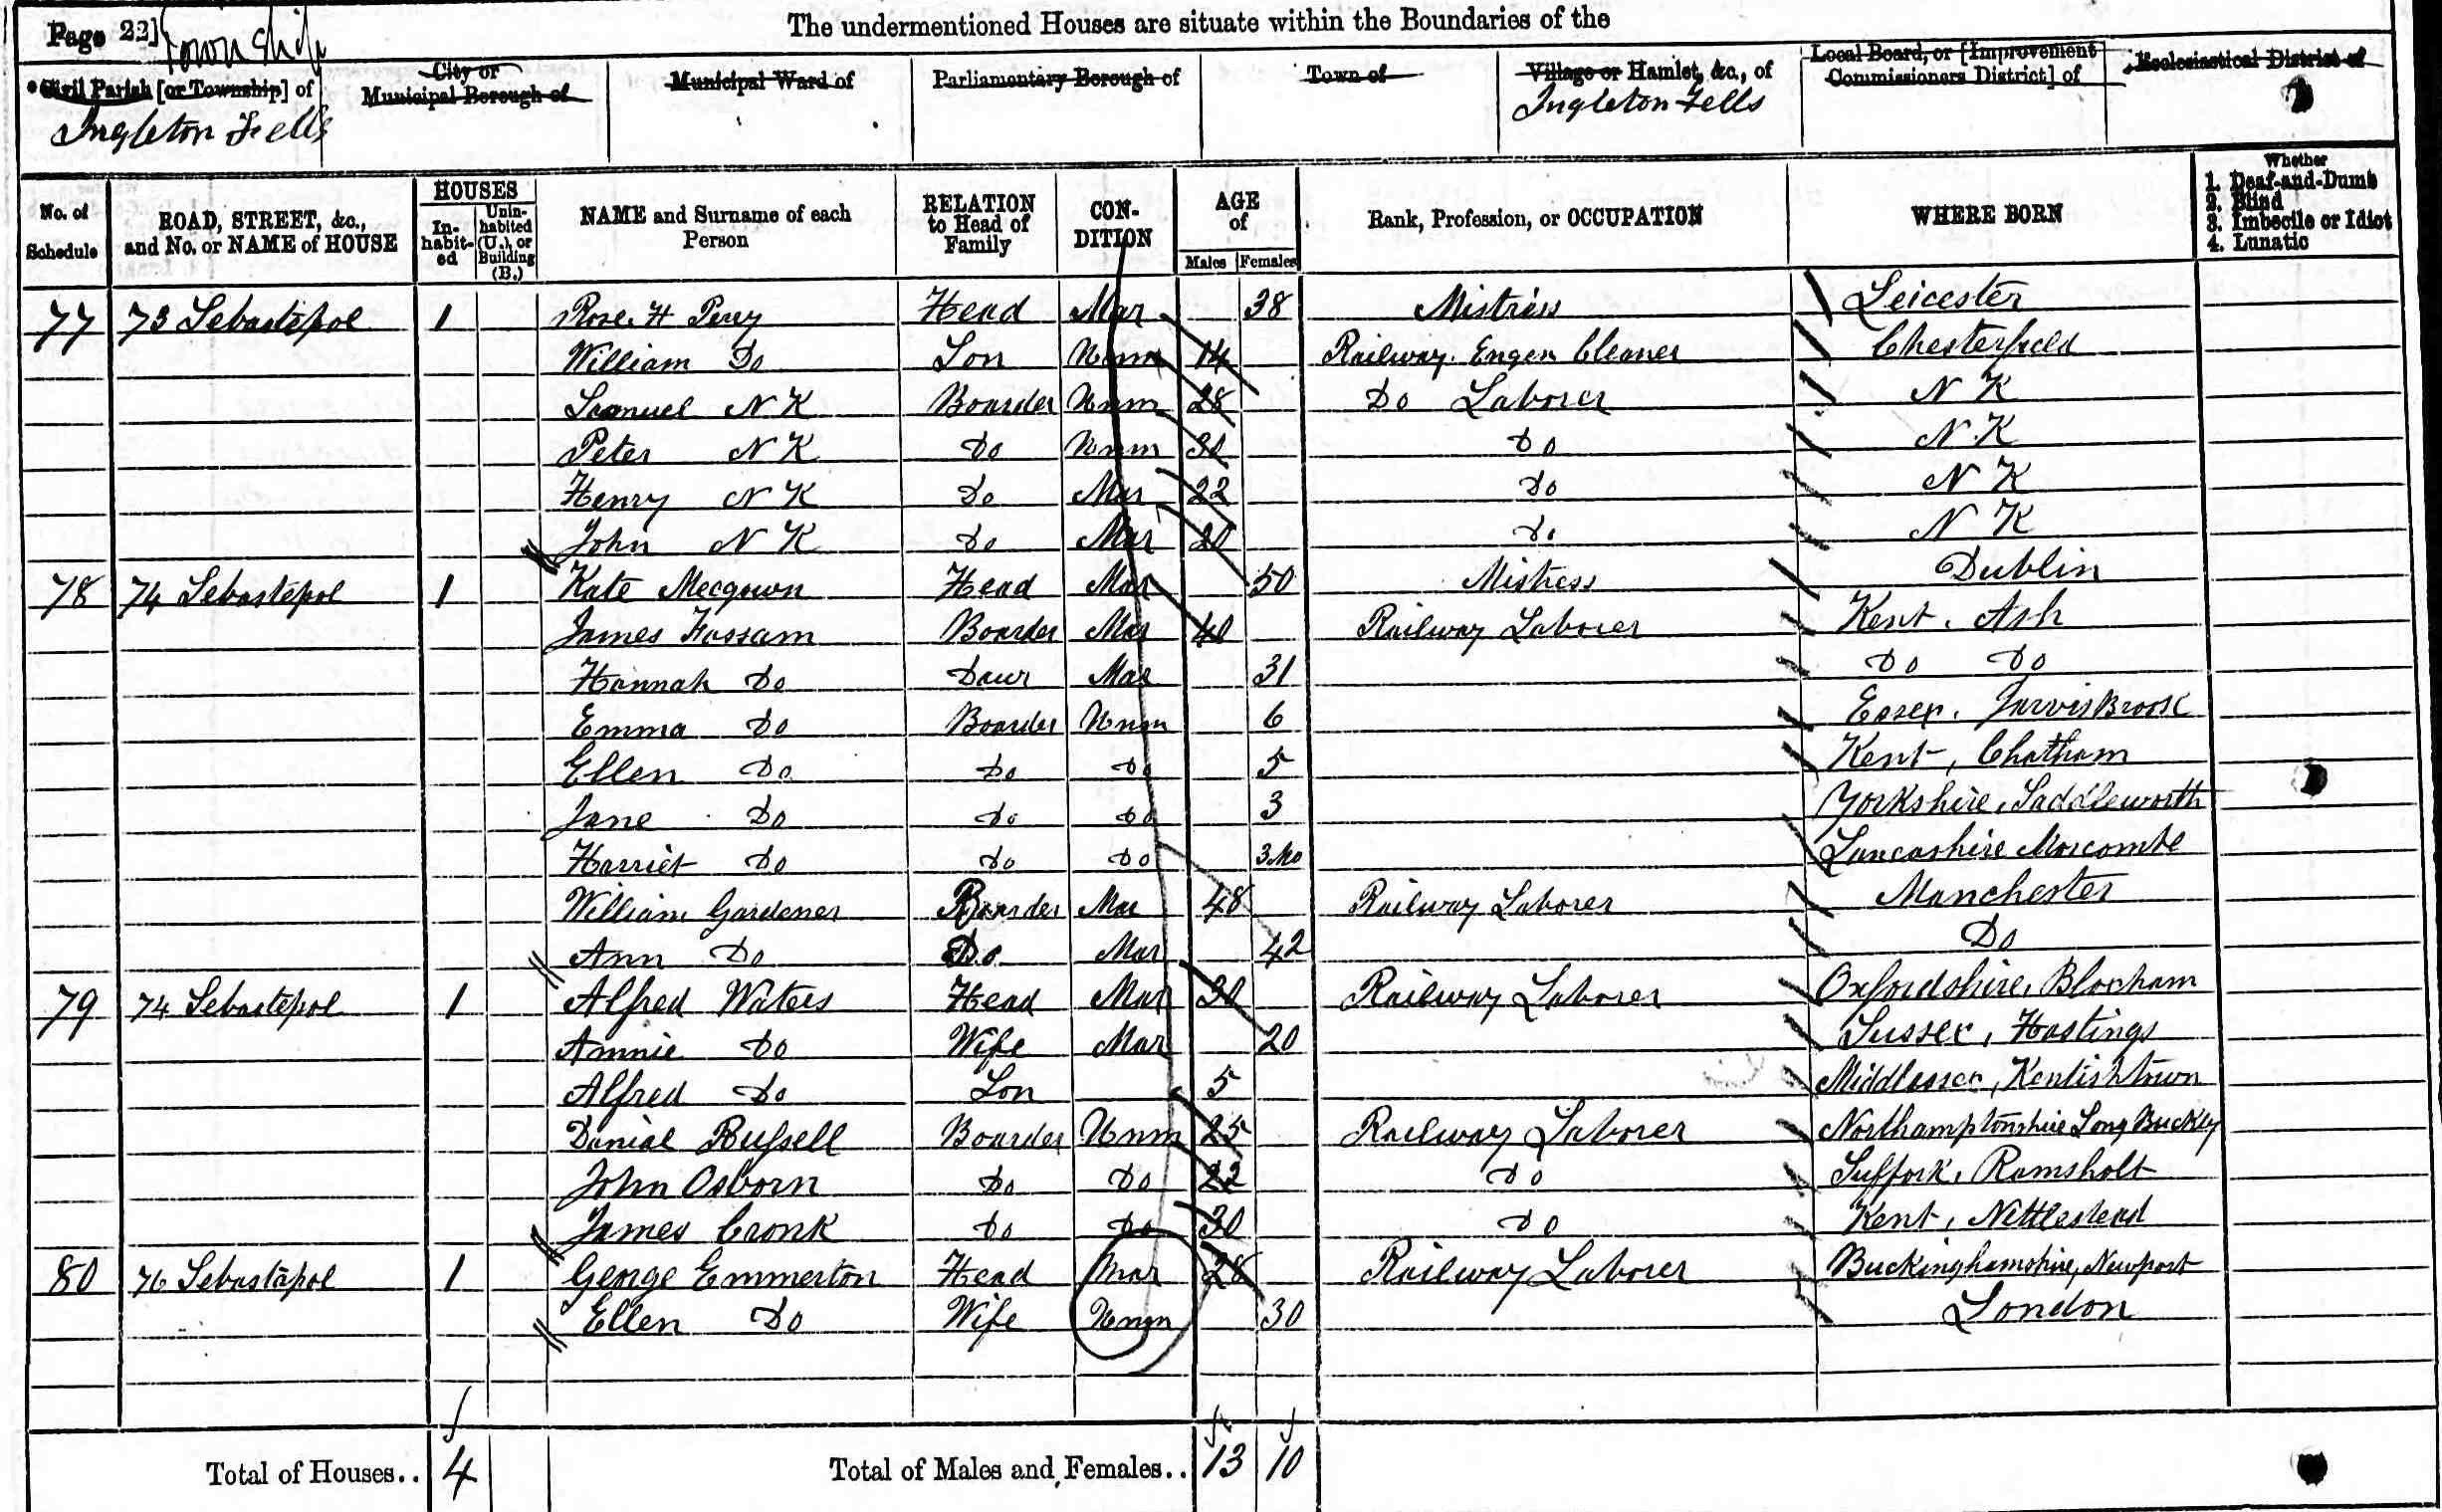 Page 23] Township
The undermentioned Houses are situate within the Boundaries of the
Civil Parish [or Township] of Ingleton Fells
City or Municipal Borough of
Municipal Ward of
Parliamentary Borough of
Town of
Village or Hamlet, &c., of Ingleton Fells
Local Board, or [Improvement Commissioners District] of
Ecclesiastical District of
No. of Schedule
ROAD, STREET, &c., and No. or NAME of HOUSE
HOUSES
In-habit-ed
Unin-habited (U.), or Building (B.)
NAME and Surname of each Person
RELATION to Head of Family
CON-DITION
AGE of
Males Females
Rank, Profession, or OCCUPATION
WHERE BORN
Whether
1. Deaf-and-Dumb
2. Blind
3. Imbecile or Idiot
4. Lunatic
77 73 Sebastepol 1 Rose H Percy Head Mar 38 Mistriss Leicester
William Do Son Unm 14 Railway Engen Cleaner Chesterfield
Samuel N K Boarder Unm 28 Do Laborer N K
Peter N K Do Unm 30 Do N K
Henry N K Do Mar 22 Do N K
John N K Do Mar 20 Do N K
78 74 Sebastepol 1 Kate Mecgown Head Mar 50 Mistress Dublin
James Fossam Boarder Mar 40 Railway Laborer Kent, Ash
Hannah Do Daur Mar 31 Do Do
Emma Do Boarder Unm 6 Essex, Jarvis Broosk
Ellen Do Do Do 5 Kent, Chatham
Jane Do Do Do 3 Yorkshire, Saddleworth
Harriet Do Do Do 3 Mo Lancashire Morcombe
William Gardener Boarder Mar 48 Railway Laborer Manchester
Ann Do Do Mar 42 Do
79 74 Sebastepol 1 Alfred Waters Head Mar 30 Railway Laborer Oxfordshire, Bloxham
Annie Do Wife Mar 20 Sussex, Hastings
Alfred Do Son 5 Middlessex, Kentishtown
Danial Russell Boarder Unm 25 Railway Laborer Northamptonshire Long Buckley
John Osborn Do Do 22 Do Suffork, Ramsholt
James Cronk Do Do 30 Do Kent, Nettlestead
80 76 Sebastapol 1 George Emmerton Head Mar 28 Railway Laborer Buckinghamshire, Newport
Ellen Do Wife Unm 30 London
Total of Houses.. 4 Total of Males and Females.. 13 10